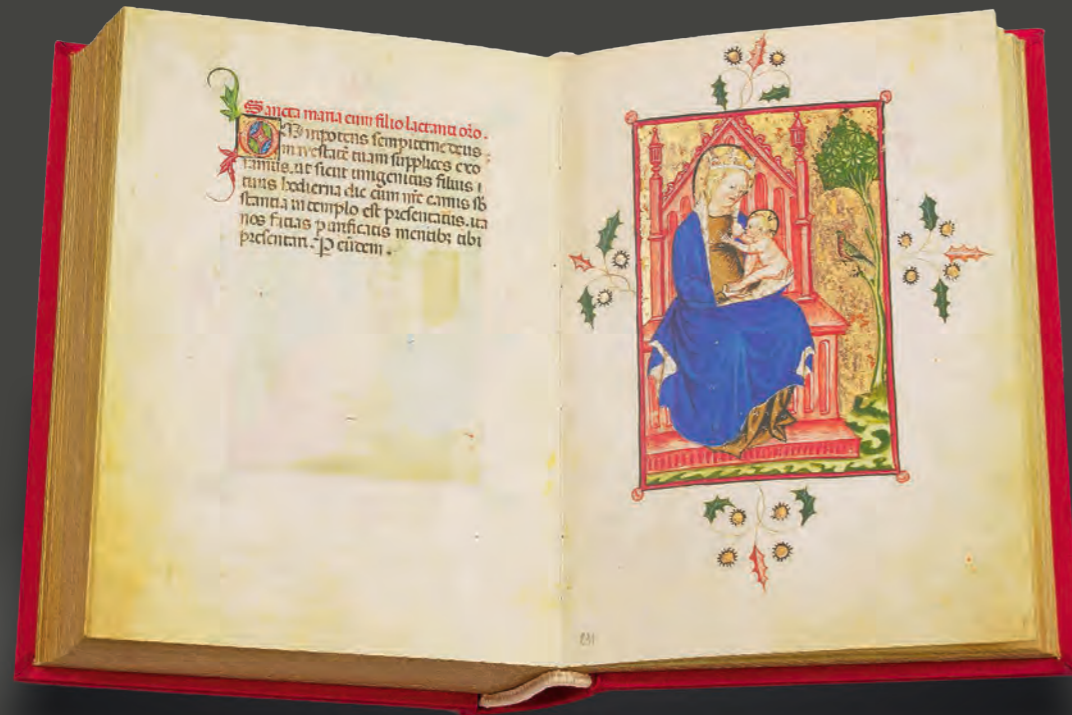 Sancta maria cum filio lactanti oro.
Omnipotens sempiterne deus
maiestatē tuam supplices exo
ramus. ut sicut unigenitus filius
tuus hodierna die cum nr̄e carnis sb̄
stantia in templo est presentatus. ita
nos facias purificatis mentibꝫ tibi
presentari. P eūdem.